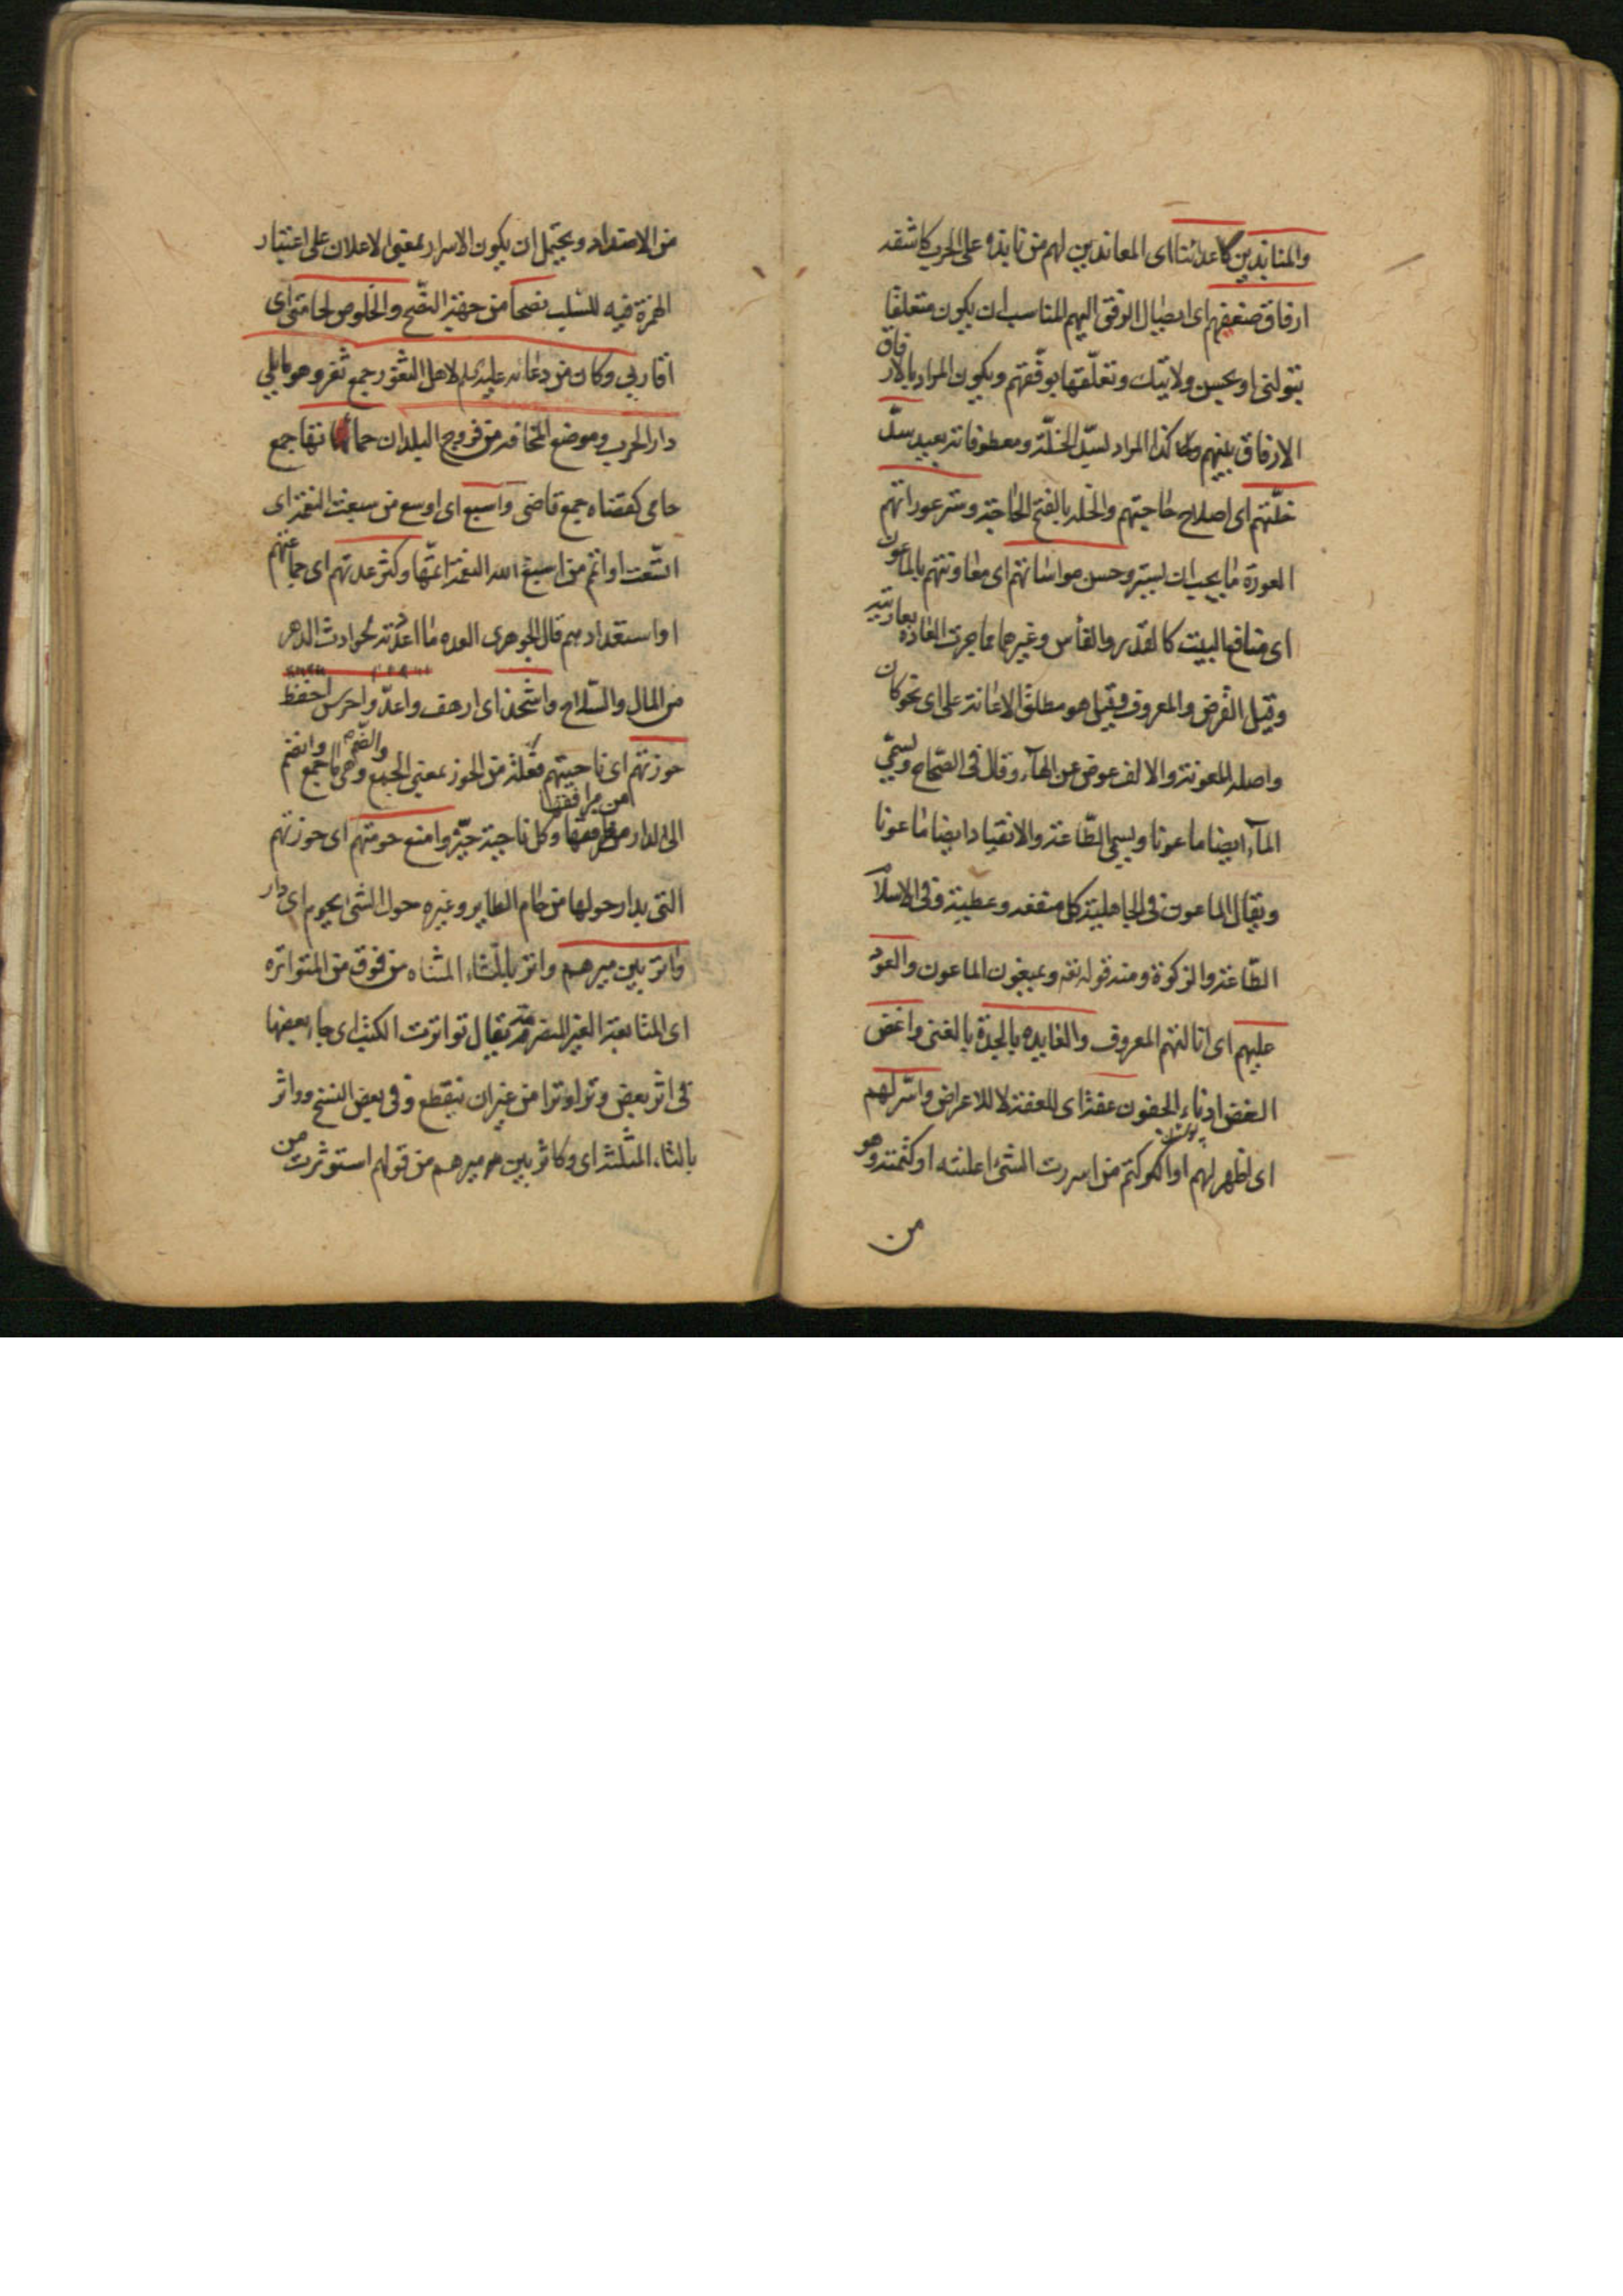 والمنابذين لاعدائنا اى المعاندين لهم من نابذه على الحرب كاشفه
ارفاق ضعيفهم اى ايصال الرفق اليهم المناسب ان يكون متعلقا
بتولنى او بحسن ولايتك وتعلّقها بوفّقهم ويكون المراد بالارفاق
الارفاق بينهم وكذا المراد لسدّ الخلّة ومعطوفاته بعيد سدّ
خلّتهم اى اصلاح حاجتهم والخلة بالفتح الحاجة وستر عوراتهم
العورة ما يجب ان يستر وحسن مواساتهم اى معاونتهم بالماعون
اى منافع البيت كالقدر والفأس وغيرهما مما جرت العادة بعاريته
وقيل القرض والمعروف وقيل هو مطلق الاعانة على اى نحو كان
واصله المعونة والالف عوض عن الهاء وقال فى الصّحاح ويسمّي
الماء ايضا ماعونا ويسمى الطّاعة والانقياد ايضا ماعونا
ويقال الماعون فى الجاهلية كل منفعة وعطية وفى الاسلام
الطّاعة والزكوة ومنه قوله تعه ويمنعون الماعون والعود
عليهم اى انالتهم المعروف والفايده بالجدة بالغنى واغض
الغض ادناء الجفون عفة اى للعفة لا للاعراض واسرّ لهم
اى اظهر لهم او اكتم من اسررت الشئ اعلنته او كتمته وهو
من
من الاضداد ويحتمل ان يكون الاسرار بمعنى الاعلان على اعتبار
الهمزة فيه للسلب نصحا من جهة النّصح والخلوص لحامتى اى
اقاربي وكان من دعائه عليه السلام لاهل الثغور جمع ثغر وهو ما يلي
دار الحرب وموضع المخافة من فروج البلدان حماتها جمع
حامى كقضاة جمع قاضى واسبغ اى اوسع من سبغت النعمة اى
اتّسعت او اتم من اسبغ الله النعمة اتمّها وكثر عدتهم اى جماعتهم
او استعدادهم قال الجوهرى العده ما اعدّته لحوادث الدهر
من المال والسّلاح واشحذ اى ارهف واعدّ واحرس احفظ
حوزتهم اى ناحيتهم فعلة من الحوز بمعنى الجمع والضّم وهى ما جمع وانضم
الى الدار من مرافقها وكل ناحية حيّز وامنع حومتهم اى حوزتهم
التى يدار حولها من حام الطاير وغيره حول الشئ يحوم اى دار
وٰاتر بين ميرهم واتر بالتاء المثناه من فوق من المتواتره
اى المتابعة الغير المنصرمة يقال تواترت الكتب اى جاء بعضها
فى اثر بعض وترا وترا من غير ان ينقطع وفى بعض النسخ وواثر
بالثاء المثلثة اى وكاثر بين ميرهم من قولهم استوثرت من